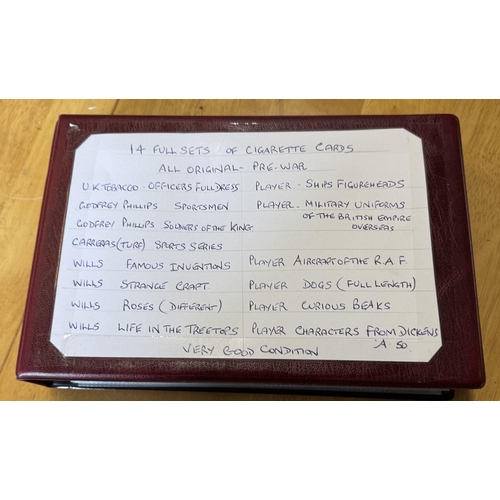 14 FULL SETS OF CIGARETTE CARDS
ALL ORIGINAL - PRE-WAR
U.K TOBACCO - OFFICERS FULL DRESS
GODFREY PHILLIPS SPORTSMEN
GODFREY PHILLIPS SOLDIERS OF THE KING
CARRERAS (TURF) SPORTS SERIES
WILLS FAMOUS INVENTIONS
WILLS STRANGE CRAFT
WILLS ROSES (DIFFERENT)
WILLS LIFE IN THE TREETOPS
PLAYER - SHIPS FIGUREHEADS
PLAYER - MILITARY UNIFORMS
OF THE BRITISH EMPIRE
OVERSEAS
PLAYER AIRCRAFT OF THE R.A.F.
PLAYER DOGS (FULL LENGTH)
PLAYER CURIOUS BEAKS
PLAYER CHARACTERS FROM DICKENS
A 50
VERY GOOD CONDITION